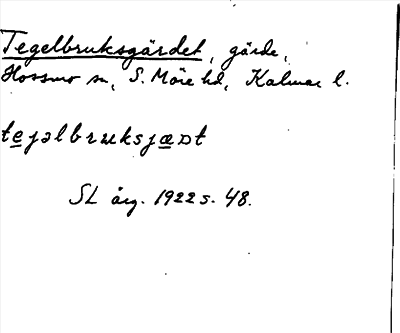 Tegelbruksgärdet, gärde,
Hossmo sn, S. Möre hd, Kalmar l.
tejəlbruksjæɒt
SL årg. 1922 s. 48.